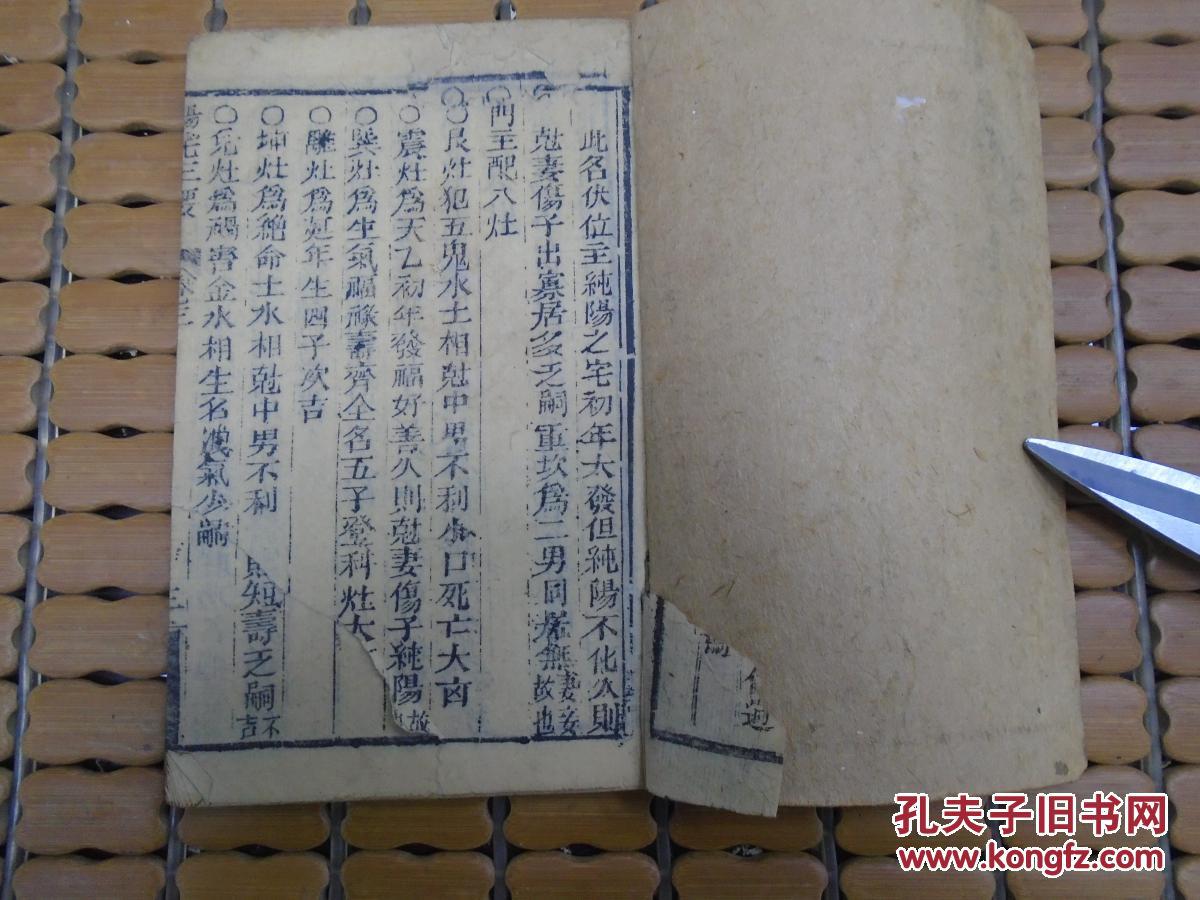 此名伏位主純陽之宅初年大發但純陽不化久則
尅妻傷子出寡居多乏嗣重坎為二男同居無妻妾故也
門主配八灶
○艮灶犯五鬼水土相尅中男不利小口死亡大凶
○震灶為天乙初年發福好善久則尅妻傷子純陽故
○巽灶為生氣福祿壽齊全名五子登科灶大
○離灶為延年生四子次吉
○坤灶為絕命土水相尅中男不利 短壽乏嗣不吉
○兌灶為禍害金水相生名洩氣少嗣
陽宅三要 卷三
過
孔夫子旧书网
www.kongfz.com